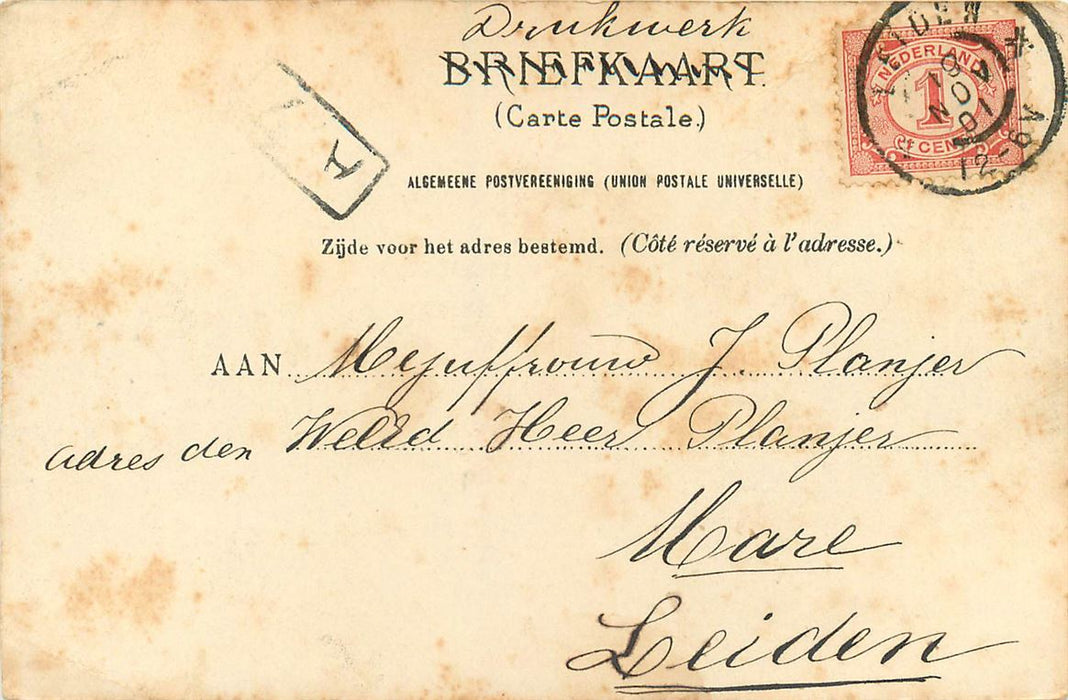 Drukwerk
BRIEFKAART.
(Carte Postale.)
ALGEMEENE POSTVEREENIGING (UNION POSTALE UNIVERSELLE)
Zijde voor het adres bestemd. (Côté réservé à l'adresse.)
NEDERLAND
1
CENT
LEIDEN
NOV
01
12-6V
A
AAN Mejuffrouw J. Planjer
adres den WelEd Heer Planjer
Mare
Leiden